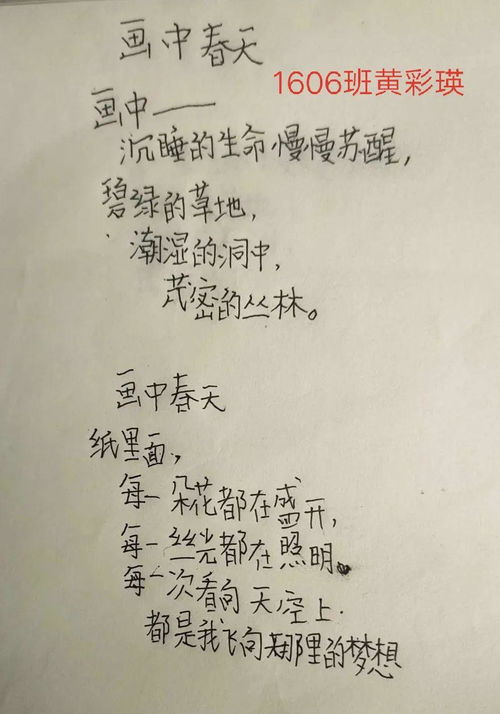 画中春天
1606班黄彩瑛
画中——
沉睡的生命慢慢苏醒，
碧绿的草地，
潮湿的洞中，
茂密的丛林。
画中春天
纸里面，
每一朵花都在盛开，
每一丝光都在照明。
每一次看向天空上.
都是我飞向那里的梦想